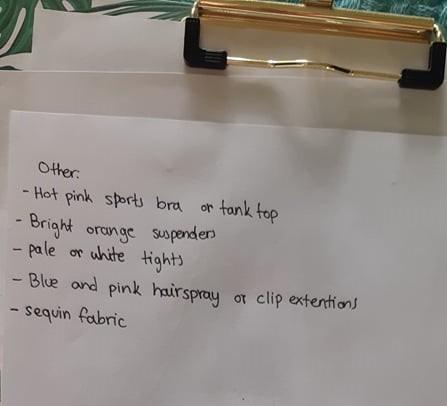 Other:
- Hot pink sports bra or tank top
- Bright orange suspenders
- pale or white tights
- Blue and pink hairspray or clip extentions
- sequin fabric